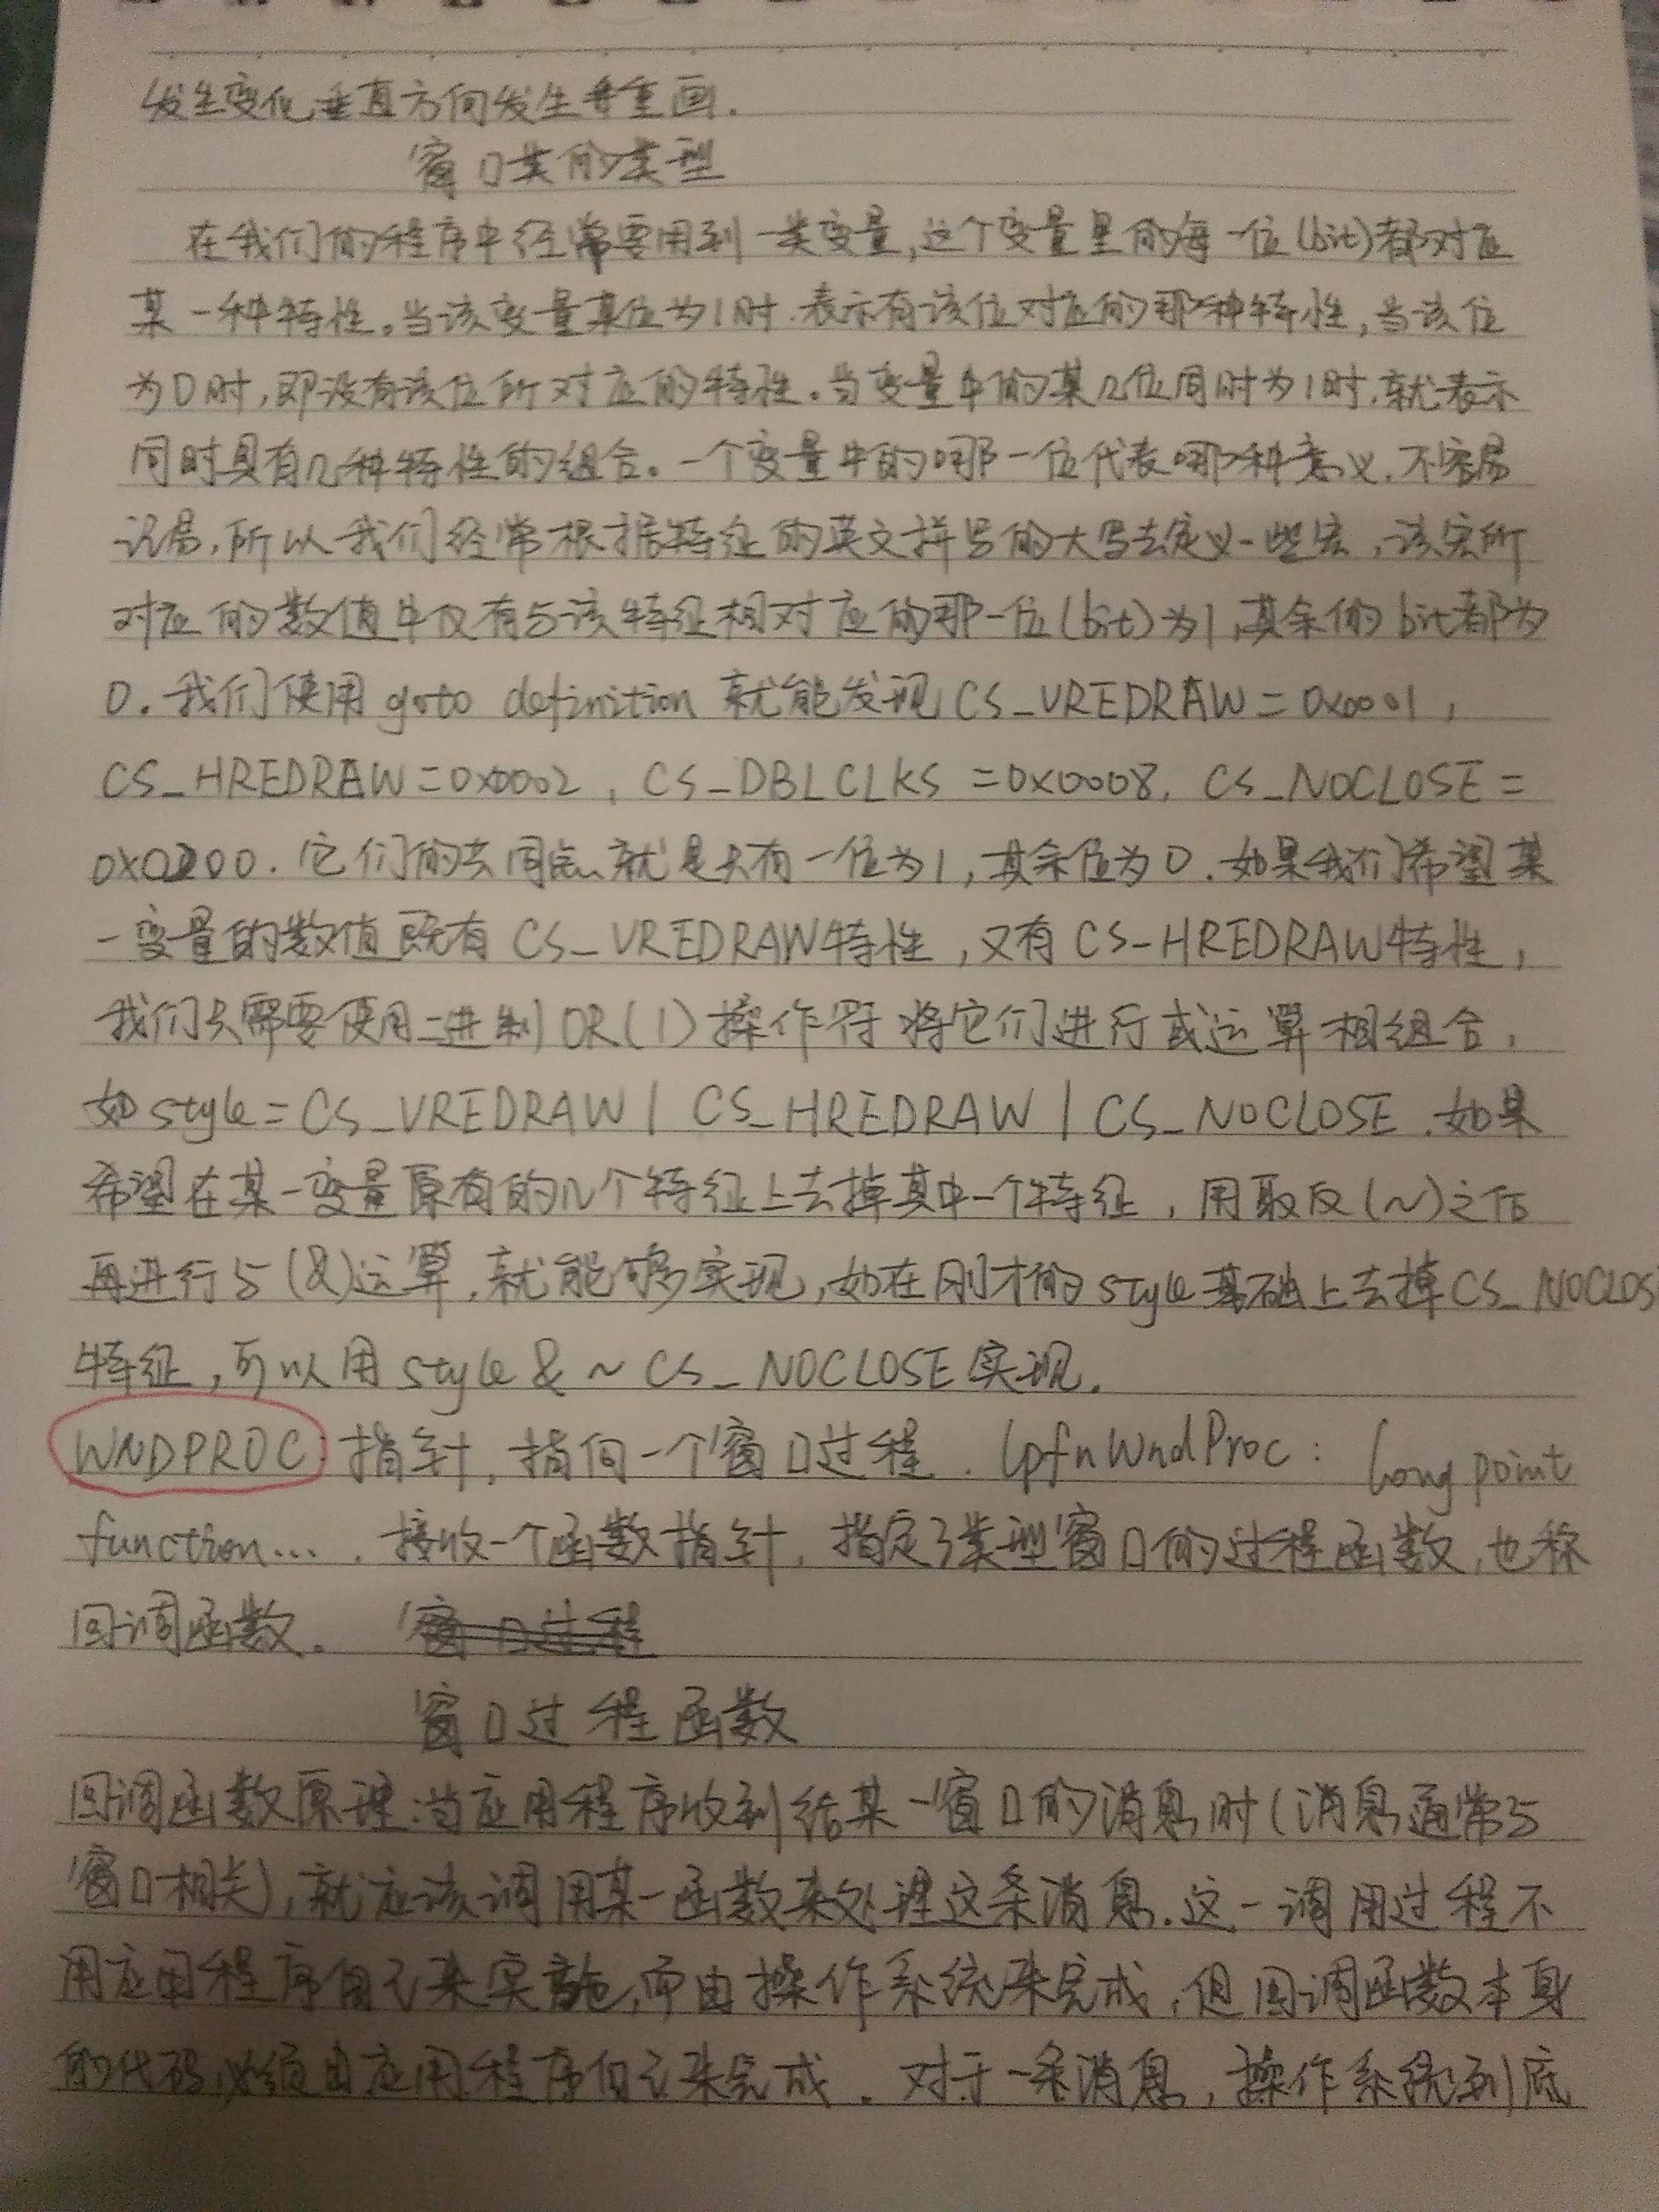 发生变化垂直方向发生并重画.
窗口类的类型
在我们的程序中经常要用到一类变量,这个变量里的每一位(bit)都对应
某一种特性。当该变量某位为1时.表示有该位对应的那种特性,当该位
为0时,即没有该位所对应的特性。当变量中的某几位同时为1时.就表示
同时具有几种特性的组合。一个变量中的哪一位代表哪种意义.不容易
记易,所以我们经常根据特征的英文拼写的大写去定义一些宏,该宏所
对应的数值中仅有与该特征相对应的那一位(bit)为1,其余的bit都为
0.我们使用goto definition就能发现CS_VREDRAW=0x0001,
CS_HREDRAW=0x0002,CS_DBLCLKS=0x0008,CS_NOCLOSE=
0x0200.它们的共同点就是只有一位为1,其余位为0.如果我们希望某
一变量的数值既有CS_VREDRAW特性,又有CS_HREDRAW特性,
我们只需要使用二进制OR(|)操作符将它们进行或运算相组合,
如style=CS_VREDRAW | CS_HREDRAW | CS_NOCLOSE.如果
希望在某一变量原有的几个特征上去掉其中一个特征,用取反(~)之后
再进行与(&)运算.就能够实现,如在刚才的style基础上去掉CS_NOCLOS
特征,可以用style & ~CS_NOCLOSE实现.
WNDPROC:指针,指向一个窗口过程.lpfnWndProc: long point
function....接收一个函数指针,指定了类型窗口的过程函数,也称
回调函数。 窗口过程
窗口过程函数
回调函数原理:当应用程序收到给某一窗口的消息时(消息通常与
窗口相关),就应该调用某一函数来处理这条消息.这一调用过程不
用应用程序自己来实施,而由操作系统来完成,但回调函数本身
的代码必须由应用程序自己来完成.对于一条消息,操作系统到底